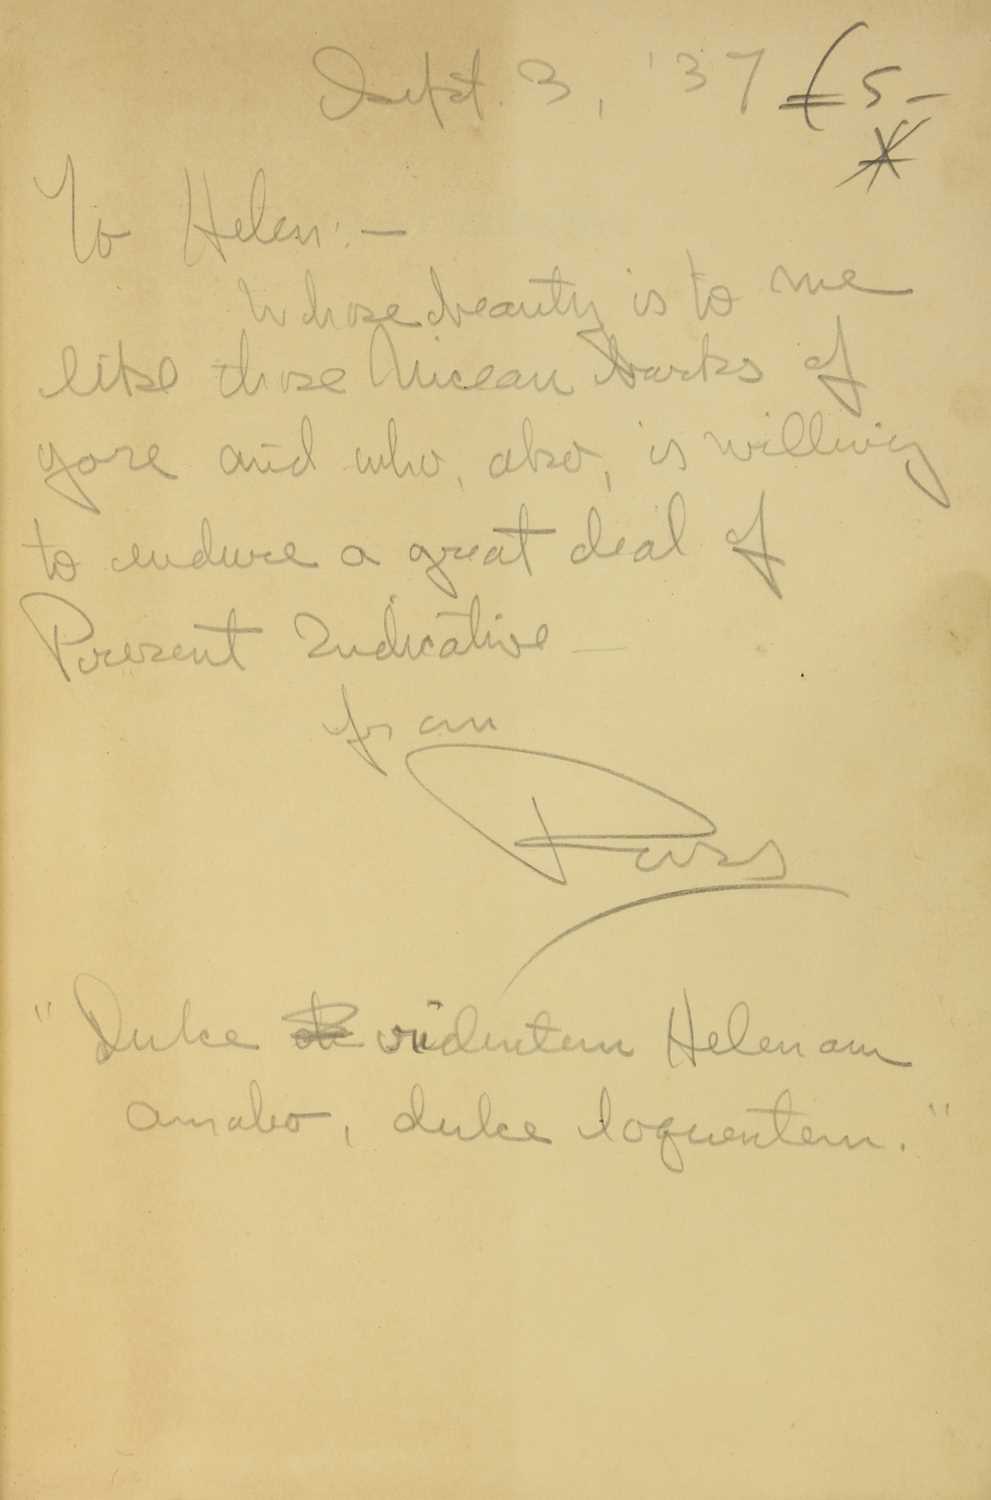 Sept. 3, '37 £5-
To Helen:—
Whose beauty is to me
like those Nicean barks of
yore and who, also, is willing
to endure a great deal of
Present Indicative —
from
Russ
"Dulce ridentem Helenam
amabo, dulce loquentem."